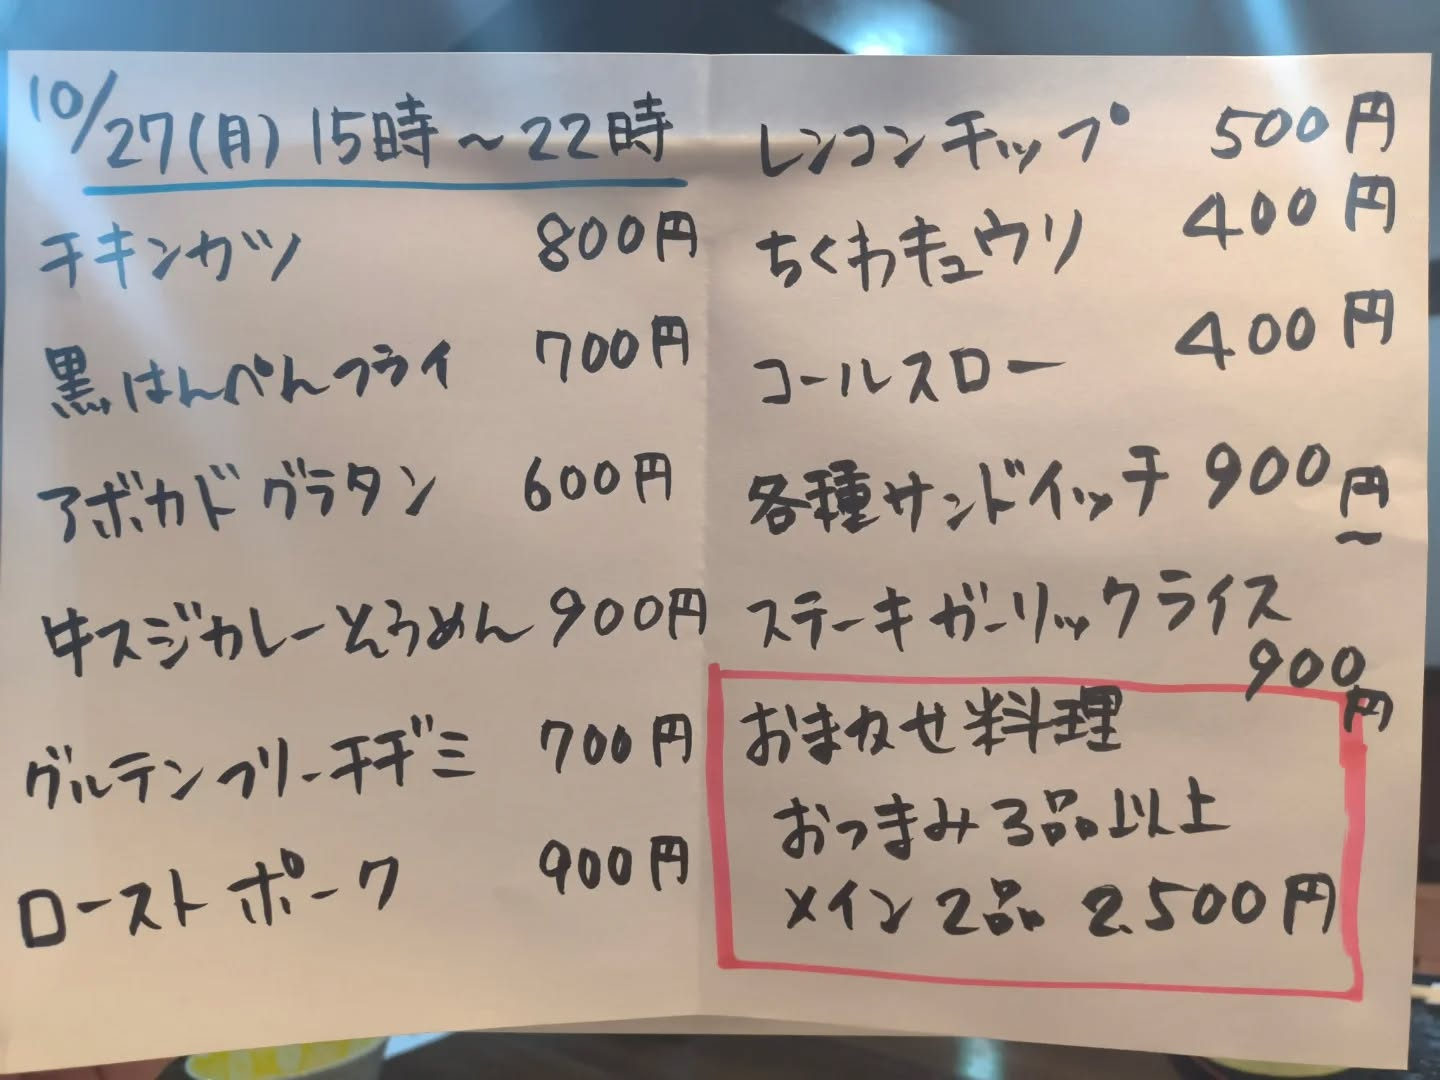 10/27(月) 15時～22時
チキンカツ 800円
黒はんぺんフライ 700円
アボカドグラタン 600円
牛スジカレーそうめん 900円
グルテンフリーチヂミ 700円
ローストポーク 900円
レンコンチップ 500円
ちくわキュウリ 400円
コールスロー 400円
各種サンドイッチ 900円～
ステーキガーリックライス
900円
おまかせ料理
おつまみ3品以上
メイン2品 2,500円